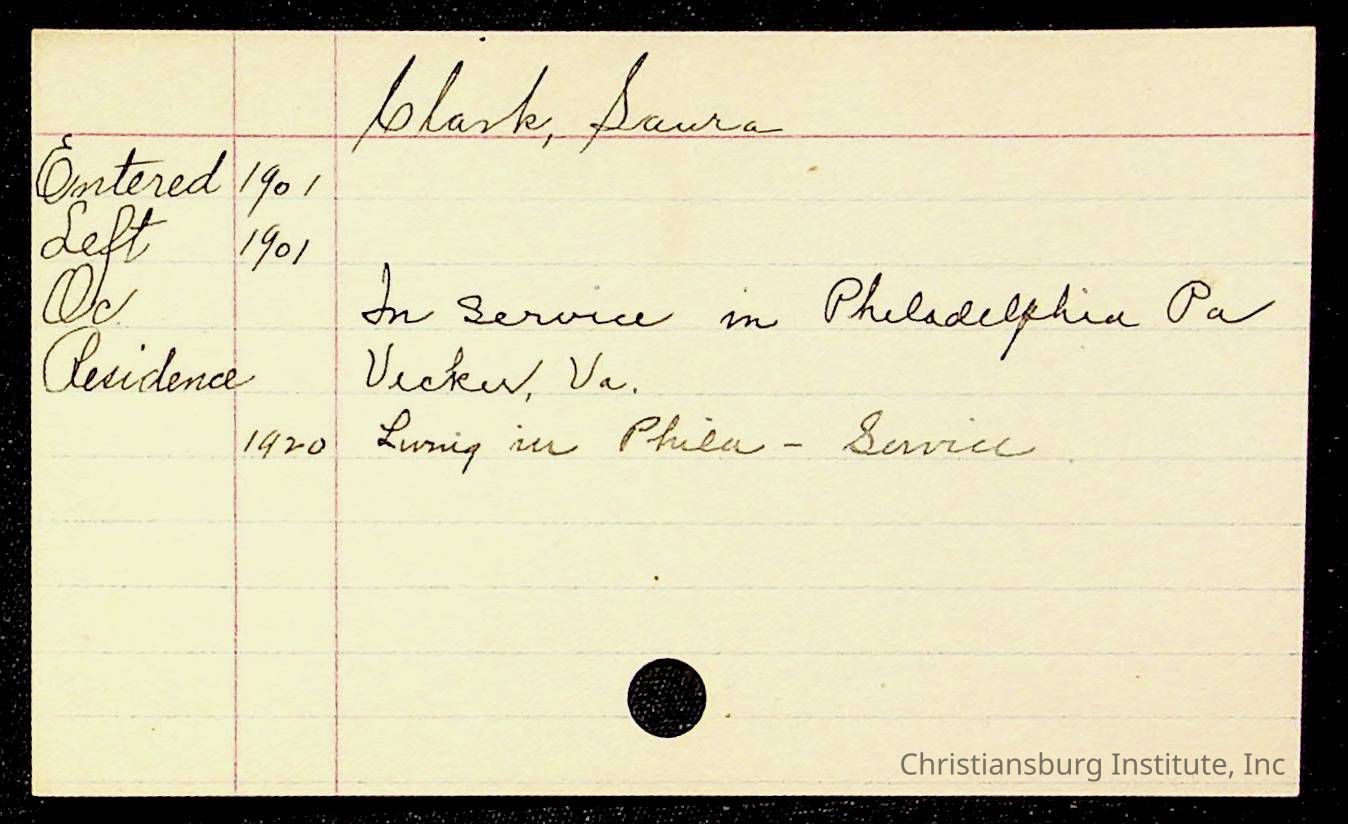 Clark, Laura
Entered 1901
Left 1901
Oc In service in Philadelphia Pa
Residence Vicker, Va.
1920 Living in Phila - Service
Christiansburg Institute, Inc